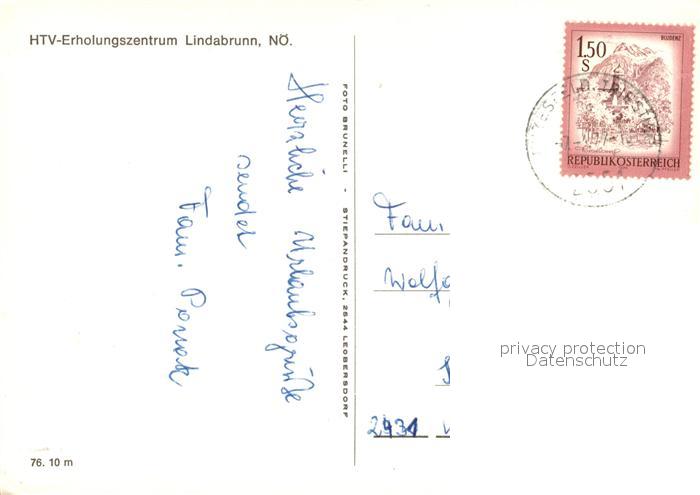 HTV-Erholungszentrum Lindabrunn, NÖ.
Herzliche Urlaubsgrüße
sendet
Fam.
FOTO BRUNELLI - STIEPANDRUCK, 2544 LEOBERSDORF
76. 10 m
1.50
S
BLUDENZ
REPUBLIK ÖSTERREICH
Fam
Wolfg
2431
privacy protection
Datenschutz